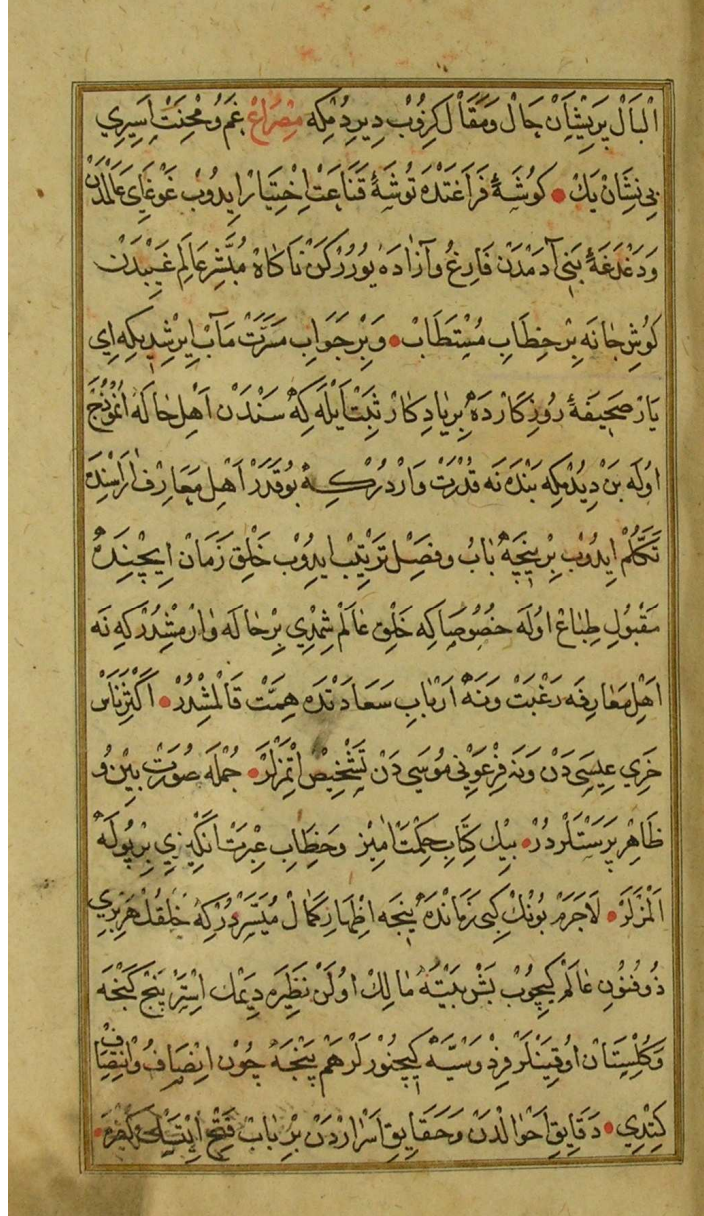 البال پریشان حال و مقال كزوب دیردمكه مصراع غم و محنت اسیری
بی نشان یك • كوشهٔ فراغتده توشهٔ قناعت اختیار ایدوب غوغای عالمدن
و دغدغهٔ بنی آدمدن فارغ و آزاده یوررکن ناکاه مبشر عالم غیبدن
کوش جانه بر خطاب مستطاب • و بر جواب مسرت مآب ایرشدیکه ای
یار صحیفهٔ روزکارده بر یادکار ثبت ایله که سندن اهل حاله انموذج
اوله بن دیدمكه بنده نه قدرت واردركه بو قدر اهل معارف اراسنده
تكلم ایدوب بر نیجه باب و فصل ترتیب ایدوب خلق زمان ایچنده
مقبول طباع اوله خصوصا كه خلق عالم شمدی بر حاله وارمشدركه نه
اهل معارفه رغبت و نه ارباب سعادتده همت قالمشدر • اكثر ناس
خری عیسی دن و نه فرعونی موسی دن تشخیص اتمزلر • جمله صورت بین و
ظاهر پرستلردر • بیك كتاب حكمت آمیز و خطاب عبرت انگیزی بر پوله
المزلر • لاجرم بونك كبی زمانده نیجه اظهار كمال میسردركه خلقك هر بری
ذوفنون عالم كچوب بش بیته مالك اولن نظیره دیمك استر پنج كنجه
و كلستان اوقینلر فردوسیه كیچنورلر هم پنجه چون انصاف و انتصاف
كتدی • دقایق احوالدن و حقایق اسراردن بر باب فتح ایتسلك كفره •